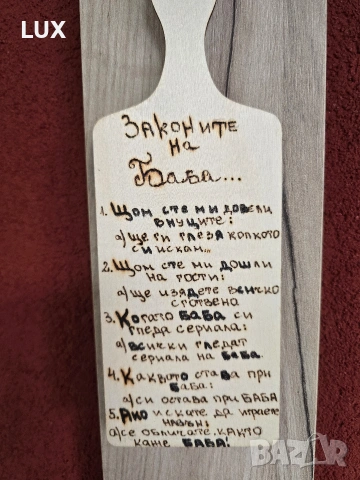 LUX
Законите
на
Баба...
1. Щом сте ми довели
внуците:
а/ще ги глезя колкото
си искам...
2. Щом сте ми дошли
на гости:
а/ще изядете всичко
сготвено
3. Когато БАБА си
гледа сериала:
а/всички гледат
сериала на баба.
4. Каквото става при
баба:
а/си остава при БАБА
5. Ако искате да играете
навън:
а/се обличате, както
каже БАБА!
BAZAR